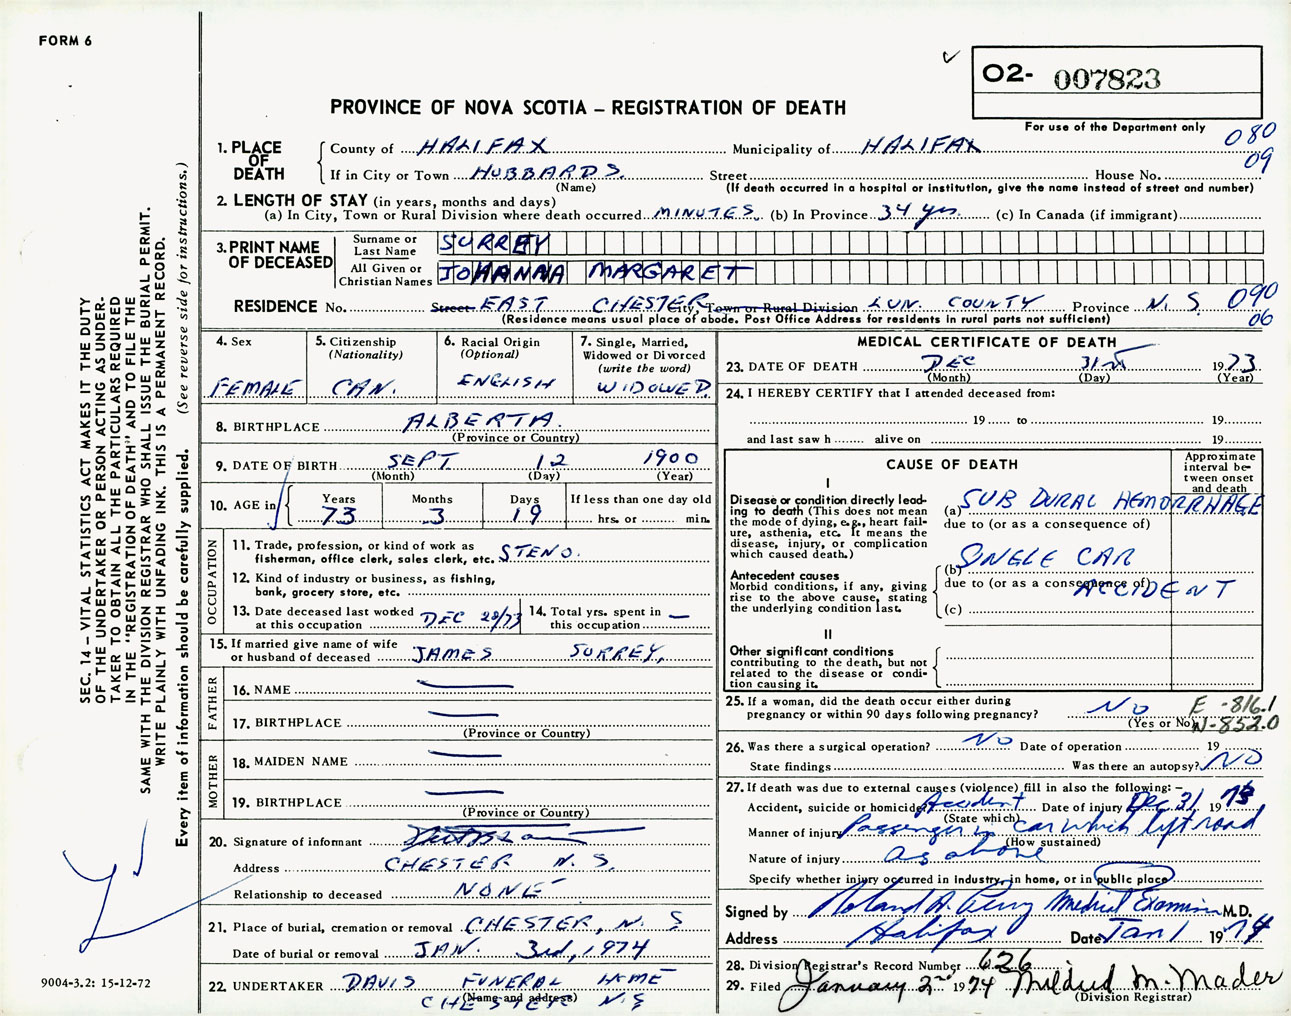 FORM 6
O2- 007823
PROVINCE OF NOVA SCOTIA – REGISTRATION OF DEATH
For use of the Department only
080
09
1. PLACE OF DEATH
County of HALIFAX Municipality of HALIFAX
If in City or Town HUBBARDS. Street House No.
(Name) (If death occurred in a hospital or institution, give the name instead of street and number)
2. LENGTH OF STAY (in years, months and days)
(a) In City, Town or Rural Division where death occurred MINUTES (b) In Province 34 yrs. (c) In Canada (if immigrant)
3. PRINT NAME OF DECEASED
Surname or Last Name SURREY
All Given or Christian Names JOHANNA MARGARET
RESIDENCE No. Street EAST CHESTER City, Town or Rural Division LUN. COUNTY Province N. S. 090
06
(Residence means usual place of abode. Post Office Address for residents in rural parts not sufficient)
4. Sex
FEMALE
5. Citizenship
(Nationality)
CAN.
6. Racial Origin
(Optional)
ENGLISH
7. Single, Married,
Widowed or Divorced
(write the word)
WIDOWED.
8. BIRTHPLACE ALBERTA.
(Province or Country)
9. DATE OF BIRTH SEPT 12 1900
(Month) (Day) (Year)
10. AGE in
Years Months Days If less than one day old
73 3 19 hrs. or min.
OCCUPATION
11. Trade, profession, or kind of work as
fisherman, office clerk, sales clerk, etc. STENO.
12. Kind of industry or business, as fishing,
bank, grocery store, etc.
13. Date deceased last worked
at this occupation DEC 28/73
14. Total yrs. spent in
this occupation —
15. If married give name of wife
or husband of deceased JAMES SURREY,
FATHER
16. NAME —
17. BIRTHPLACE —
(Province or Country)
MOTHER
18. MAIDEN NAME —
19. BIRTHPLACE —
(Province or Country)
20. Signature of informant
Address CHESTER N. S.
Relationship to deceased NONE
21. Place of burial, cremation or removal CHESTER, N. S
Date of burial or removal JAN. 3rd, 1974
22. UNDERTAKER DAVIS FUNERAL HOME
(Name and address)
CHESTER N.S
MEDICAL CERTIFICATE OF DEATH
23. DATE OF DEATH DEC 31st 1973
(Month) (Day) (Year)
24. I HEREBY CERTIFY that I attended deceased from:
19 to 19
and last saw h alive on 19
CAUSE OF DEATH
Approximate
interval be-
tween onset
and death
I
Disease or condition directly lead-
ing to death (This does not mean
the mode of dying, e.g., heart fail-
ure, asthenia, etc. It means the
disease, injury, or complication
which caused death.)
(a) SUB DURAL HEMORRHAGE
due to (or as a consequence of)
Antecedent causes
Morbid conditions, if any, giving
rise to the above cause, stating
the underlying condition last.
(b) SINGLE CAR
due to (or as a consequence of)
ACCIDENT
(c)
II
Other significant conditions
contributing to the death, but not
related to the disease or condi-
tion causing it.
25. If a woman, did the death occur either during
pregnancy or within 90 days following pregnancy? NO
(Yes or No)
E -816.1
N-852.0
26. Was there a surgical operation? NO Date of operation 19
State findings Was there an autopsy? NO
27. If death was due to external causes (violence) fill in also the following:-
Accident, suicide or homicide Accident Date of injury Dec 31 1973
(State which)
Manner of injury Passenger in car which left road
(How sustained)
Nature of injury as above
Specify whether injury occurred in industry, in home, or in public place
Signed by Roland A. Perry Medical Examiner M.D.
Address Halifax Date Jan 1 1974
28. Division Registrar's Record Number 626
29. Filed January 2nd 1974 Mildred M. Mader
(Division Registrar)
SEC. 14 – VITAL STATISTICS ACT MAKES IT THE DUTY
OF THE UNDERTAKER OR PERSON ACTING AS UNDER-
TAKER TO OBTAIN ALL THE PARTICULARS REQUIRED
IN THE "REGISTRATION OF DEATH" AND TO FILE THE
SAME WITH THE DIVISION REGISTRAR WHO SHALL ISSUE THE BURIAL PERMIT.
WRITE PLAINLY WITH UNFADING INK. THIS IS A PERMANENT RECORD.
Every item of information should be carefully supplied. (See reverse side for instructions.)
9004-3.2: 15-12-72